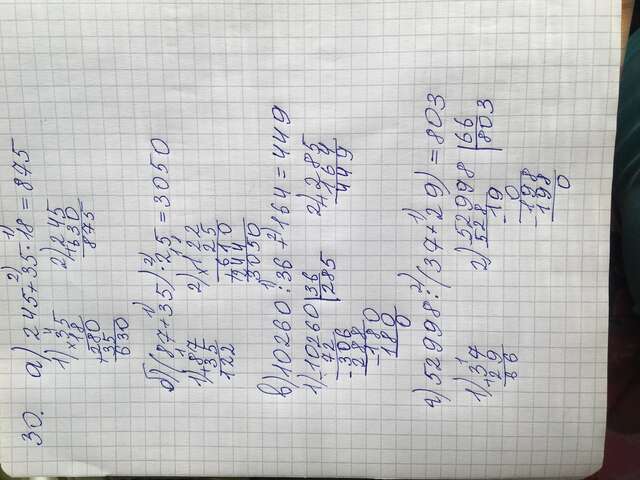 30.
а) 245+35·18=875
1) ×35
18
+280
35
630
2) +245
630
875
б) (87+35)·25=3050
1) +87
35
122
2) ×122
25
+610
244
3050
в) 10260:36+164=449
1) 10260|36
72 285
-306
288
-180
180
0
2) +285
164
449
г) 52998:(37+29)=803
1) +37
29
66
2) 52998|66
528 803
-19
0
-198
198
0